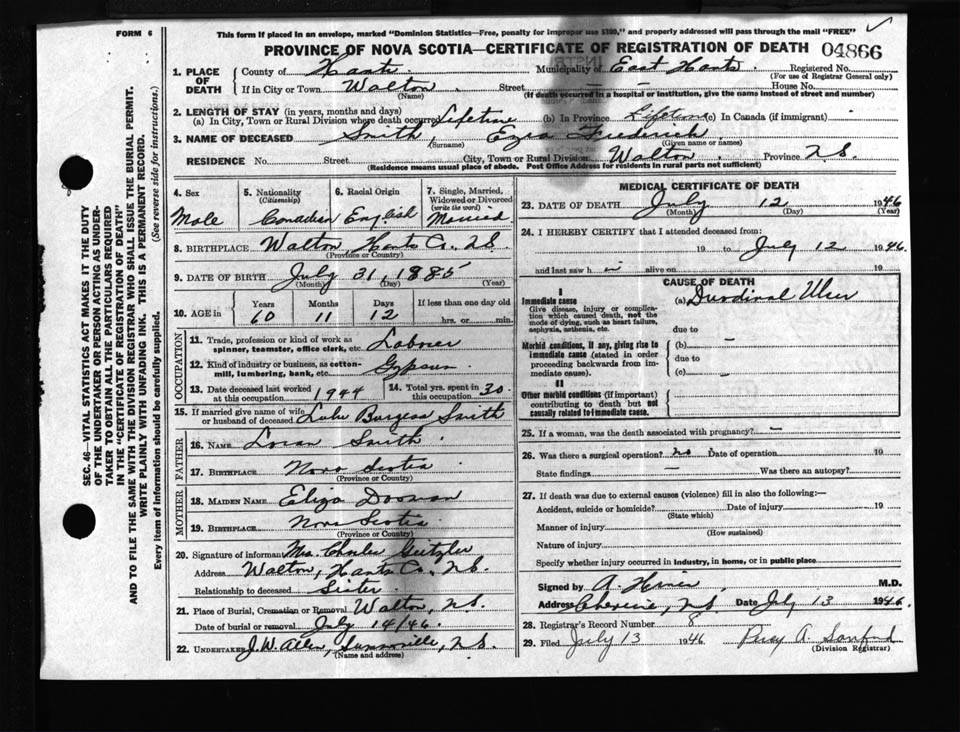 FORM 6
This form if placed in an envelope, marked "Dominion Statistics—Free, penalty for improper use $300," and properly addressed will pass through the mail "FREE"
PROVINCE OF NOVA SCOTIA—CERTIFICATE OF REGISTRATION OF DEATH 04866
1. PLACE OF DEATH
County of Hants Municipality of East Hants Registered No.
(For use of Registrar General only)
If in City or Town Walton Street House No.
(Name) (If death occurred in a hospital or institution, give the name instead of street and number)
2. LENGTH OF STAY (in years, months and days)
(a) In City, Town or Rural Division where death occurred Lifetime (b) In Province Lifetime (c) In Canada (if immigrant)
3. NAME OF DECEASED Smith, Ezra Frederick
(Surname) (Given name or names)
RESIDENCE No. Street City, Town or Rural Division Walton Province N.S.
(Residence means usual place of abode. Post Office Address for residents in rural parts not sufficient)
4. Sex 5. Nationality 6. Racial Origin 7. Single, Married, Widowed or Divorced
(Citizenship) (write the word)
Male Canadian English Married
8. BIRTHPLACE Walton, Hants Co., N.S.
(Province or Country)
9. DATE OF BIRTH July 31, 1885
(Month) (Day) (Year)
10. AGE in Years Months Days If less than one day old
60 11 12 hrs. or min.
OCCUPATION
11. Trade, profession or kind of work as spinner, teamster, office clerk, etc. Laborer
12. Kind of industry or business, as cotton-mill, lumbering, bank, etc. Gypsum
13. Date deceased last worked at this occupation 1944 14. Total yrs. spent in this occupation 30
15. If married give name of wife or husband of deceased Lulu Burgess Smith
FATHER
16. NAME Loran Smith
17. BIRTHPLACE Nova Scotia
(Province or Country)
MOTHER
18. MAIDEN NAME Eliza
19. BIRTHPLACE Nova Scotia
(Province or Country)
20. Signature of informant Mrs. Charles
Address Walton, Hants Co., N.S.
Relationship to deceased Sister
21. Place of Burial, Cremation or Removal Walton, N.S.
Date of burial or removal July 14/46
22. UNDERTAKER J.W. Allen, Summerville, N.S.
(Name and address)
MEDICAL CERTIFICATE OF DEATH
23. DATE OF DEATH July 12 1946
(Month) (Day) (Year)
24. I HEREBY CERTIFY that I attended deceased from:
19 to July 12 1946
and last saw h im alive on 19
CAUSE OF DEATH
I
Immediate cause
Give disease, injury or complication which caused death, not the mode of dying, such as heart failure, asphyxia, asthenia, etc.
(a) Duodinal Ulcer
due to
Morbid conditions, if any, giving rise to immediate cause (stated in order proceeding backwards from immediate cause).
(b) –
due to
(c) –
II
Other morbid conditions (if important) contributing to death but not causally related to immediate cause.
25. If a woman, was the death associated with pregnancy? –
26. Was there a surgical operation? no Date of operation 19
State findings – Was there an autopsy?
27. If death was due to external causes (violence) fill in also the following:—
Accident, suicide or homicide? Date of injury 19
(State which)
Manner of injury
(How sustained)
Nature of injury
Specify whether injury occurred in industry, in home, or in public place
Signed by A. M.D.
Address Cheverie, N.S. Date July 13 1946
28. Registrar's Record Number 8
29. Filed July 13 1946 Percy A. Sanford
(Division Registrar)
SEC. 46—VITAL STATISTICS ACT MAKES IT THE DUTY
OF THE UNDERTAKER OR PERSON ACTING AS UNDER-
TAKER TO OBTAIN ALL THE PARTICULARS REQUIRED
IN THE "CERTIFICATE OF REGISTRATION OF DEATH"
AND TO FILE THE SAME WITH THE DIVISION REGISTRAR WHO SHALL ISSUE THE BURIAL PERMIT.
WRITE PLAINLY WITH UNFADING INK. THIS IS A PERMANENT RECORD.
Every item of information should be carefully supplied. (See reverse side for instructions.)